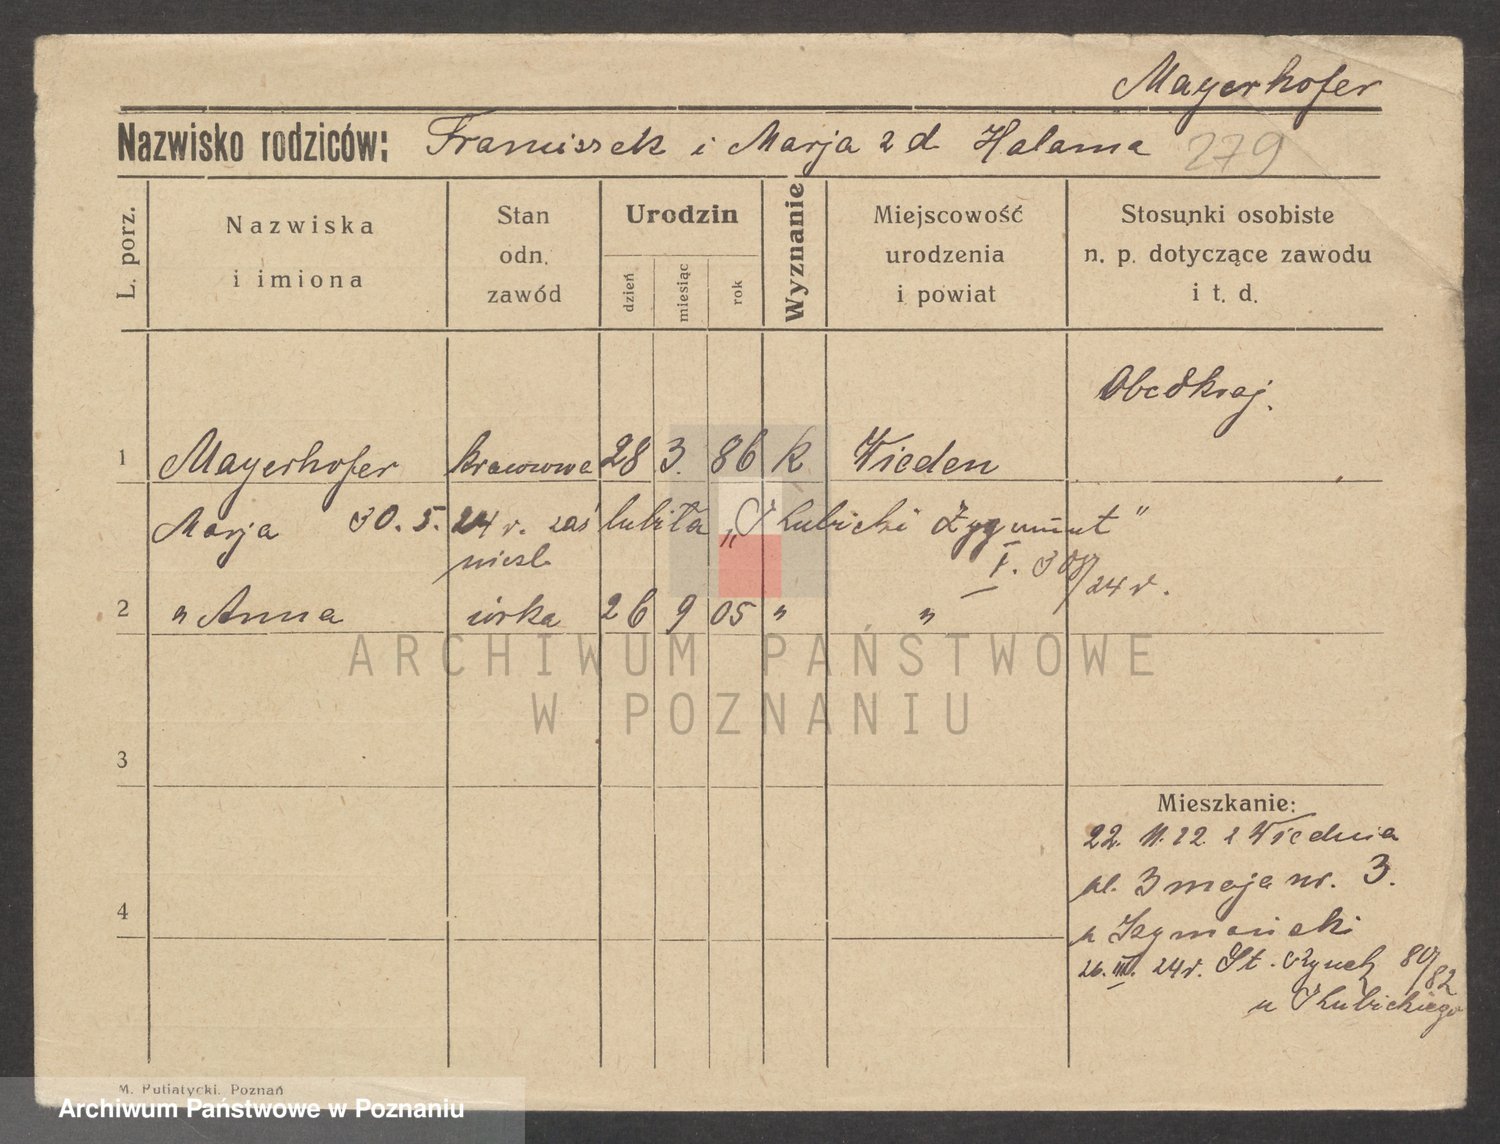 Mayerhofer
Nazwisko rodziców: Franciszek i Marja 2 d Halama 279
L. porz.
Nazwiska i imiona
Stan odn. zawód
Urodzin
dzień
miesiąc
rok
Wyznanie
Miejscowość urodzenia i powiat
Stosunki osobiste n. p. dotyczące zawodu i t. d.
Obcokraj.
1 Mayerhofer krawcowa 28 3. 86 k Wieden
Marja 30. 5. 24 r. zaślubiła „Skubicki Zygmunt"
I. 308/24 r.
niesl.
2 " Anna córka 26 9 05 " "
3
Mieszkanie:
22. 11. 22. z Wiednia
pl. 3 maja nr. 3.
4
u Szymański
26. III. 24 r. St. Rynek 80/82
u Skubickiego
M. Putiatycki, Poznań
ARCHIWUM PAŃSTWOWE
W POZNANIU
Archiwum Państwowe w Poznaniu